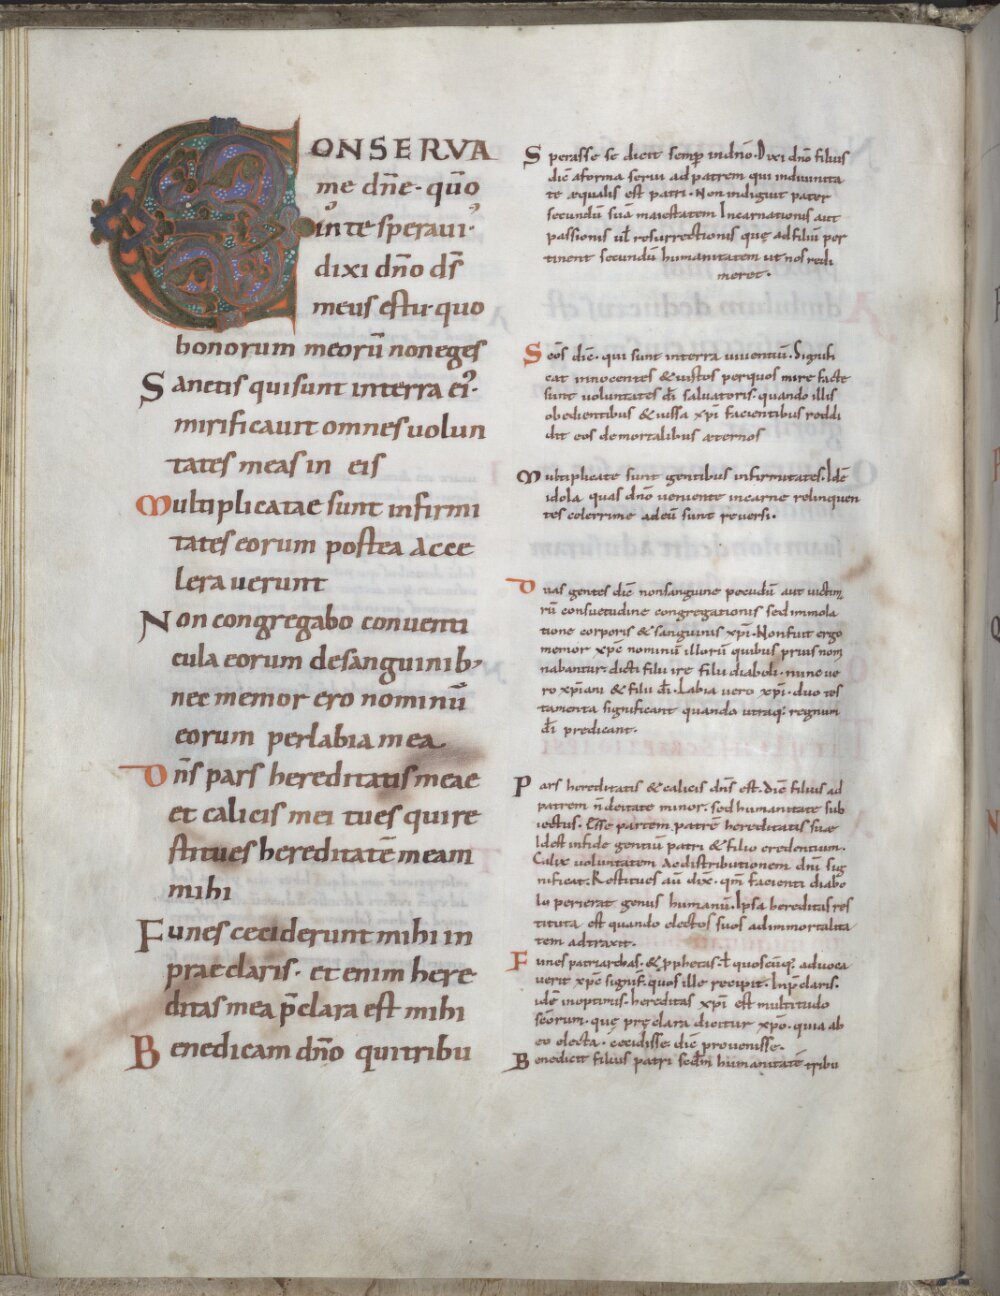 CONSERVA
me dñe· qūo
in te speraui·
dixi dño ds̄
meus es tu· quo
bonorum meorū non eges
Sanctis qui sunt in terra ei᾽·
mirificauit omnes uolun
tates meas in eis
Multiplicatae sunt infirmi
tates eorum postea acce
lerauerunt
Non congregabo conuenti
cula eorum de sanguinib᾽
nec memor ero nominū
eorum per labia mea
Dn̄s pars hereditatis meae
et calicis mei tu es qui re
stitues hereditatē meam
mihi
Funes ceciderunt mihi in
praeclaris· et enim here
ditas mea p̄clara est mihi
Benedicam dño qui tribu
Sperasse se dicit semp̄ in dño· Dixi dño filius
dic̄ a forma serui ad patrem qui in diuinita
te æqualis est patri· Non indiguit pater
secundū suā maiestatem Incarnationis aut
passionis uł resurrectionis quę ad filiū per
tinent secundū humanitatem ut nos redi
meret·
Sc̄os dic̄· qui sunt in terra uiuentiū· Signifi
cat innocentes & iustos per quos mire facte
sunt uoluntates dī saluatoris· quando illis
obedientibus & iussa xp̄i facientibus reddi
dit eos de mortalibus æternos
Multiplicate sunt gentibus infirmitates· Idē
idola quas dño ueniente in carne relinquen
tes celerrime ad eū sunt reuersi·
Duas gentes dic̄ non sanguine pecudū aut uictim
rū consuetudine congregationis sed immola
tione corporis & sanguinis xp̄i· Non fuit ergo
memor xp̄c nominū illorū quibus prius nom
nabantur· dicti filii irę filii diaboli· nunc ue
ro xp̄iani & filii dī· Labia uero xp̄i· duo tes
tamenta significant quando utraq; regnum
dī predicant·
Pars hereditatis & calicis dn̄s est· Dic̄ filius ad
patrem n̄ deitate minor· sed humanitate sub
iectus· Esse partem patrē hereditatis suæ
Id est in fide gentiū patri & filio credentium·
Calix uoluntatem ac distributionem dn̄i sig
nificat· Restitues aū dix̄· qm̄ facienti diabo
lo perierat genus humanū· Ipsa hereditas res
tituta est quando electos suos ad immortalita
tem adtraxit·
Funes patriarchas· & p̄phetas· ł quoscūq; aduoca
uerit xp̄c signif̄· quos ille recipit· In p̄claris·
idē in optimis· hereditas xp̄i est multitudo
sc̄orum· quę pręclara dicitur xp̄o· quia ab
eo electa· cecidisse· dic̄ prouenisse·
Benedicit filius patri secdm̄ humanitatē tribu